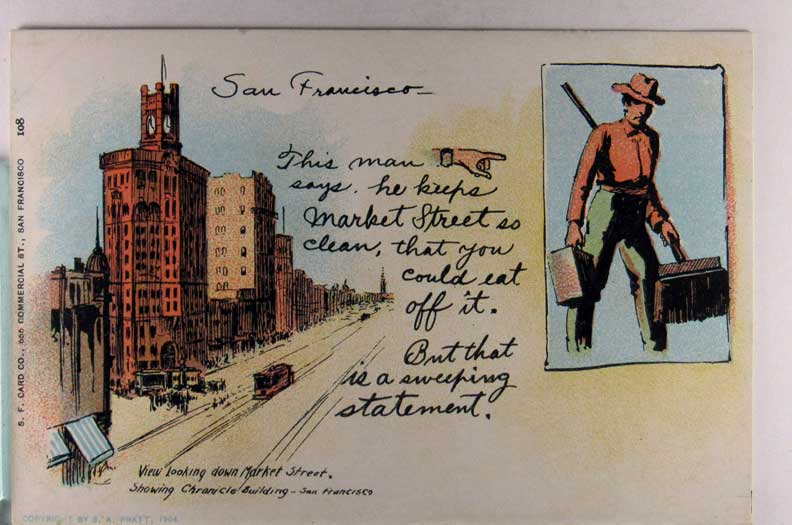 San Francisco—
This man
says. he keeps
Market Street so
clean, that you
could eat
off it.
But that
is a sweeping
statement.
View looking down Market Street.
Showing Chronicle Building - San Francisco
COPYRIGHT BY S. A. PRATT, 1904
S. F. CARD CO., COMMERCIAL ST., SAN FRANCISCO 108